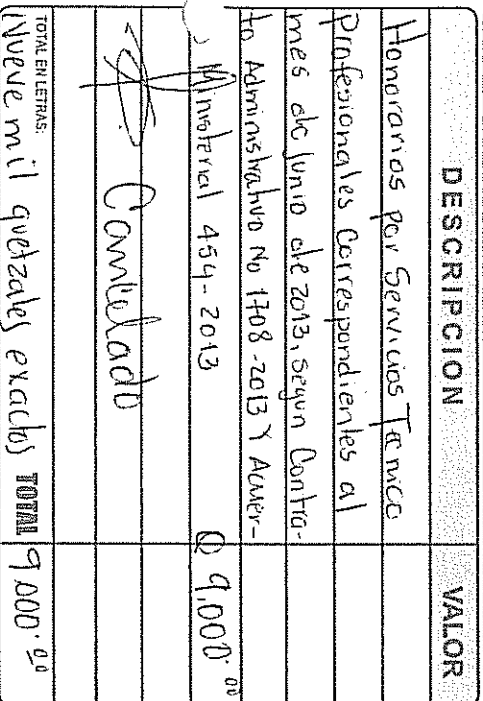 DESCRIPCION VALOR
Honorarios por Servicios Tecnico
Profesionales Correspondientes al
mes de Junio de 2013, segun Contra-
to Administrativo No 1708-2013 Y Acuer-
Ministerial 454-2013 Q 9,000.00
Cancelado
TOTAL EN LETRAS:
Nueve mil quetzales exactos TOTAL 9,000.00